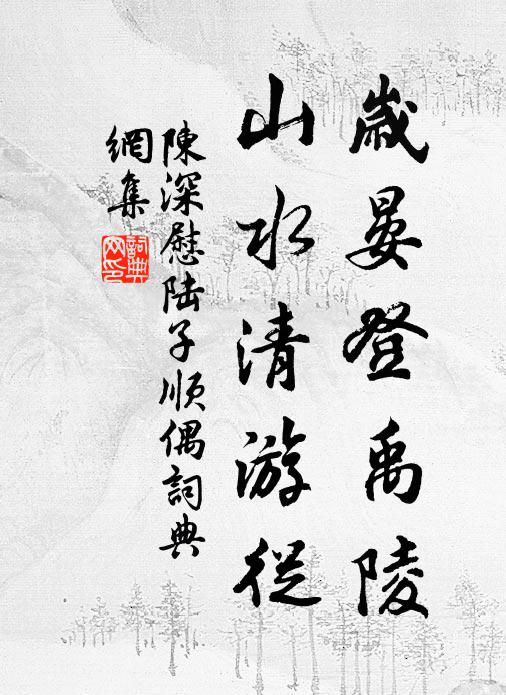 歲晏登禹陵
山水清游從
陳深慰陆子順偶詞典
網集
詞典
网印